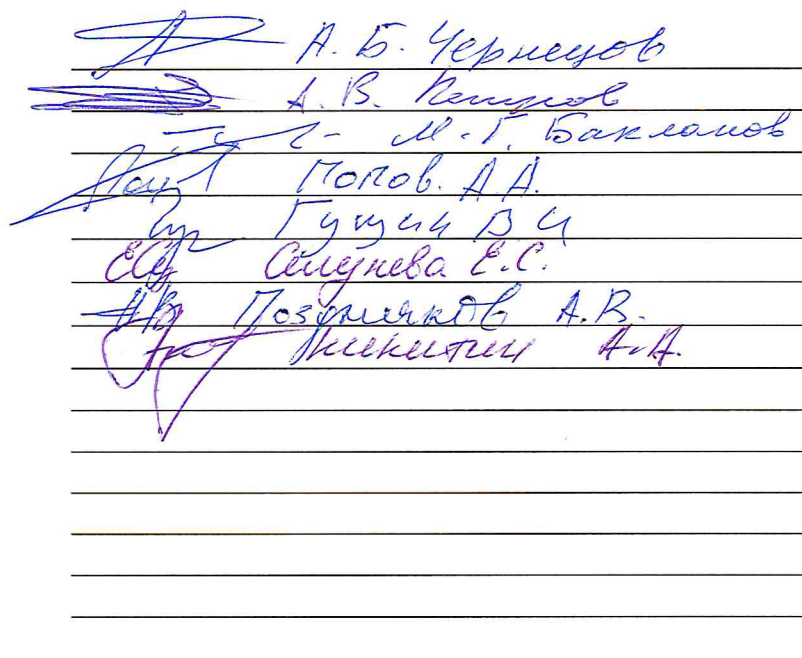 А. Б. Чернецов
А. В.
М. Г. Бакланов
Попов. А. А.
Гущин В И
Е.С.
Поздняков А. В.
Никитин А. А.